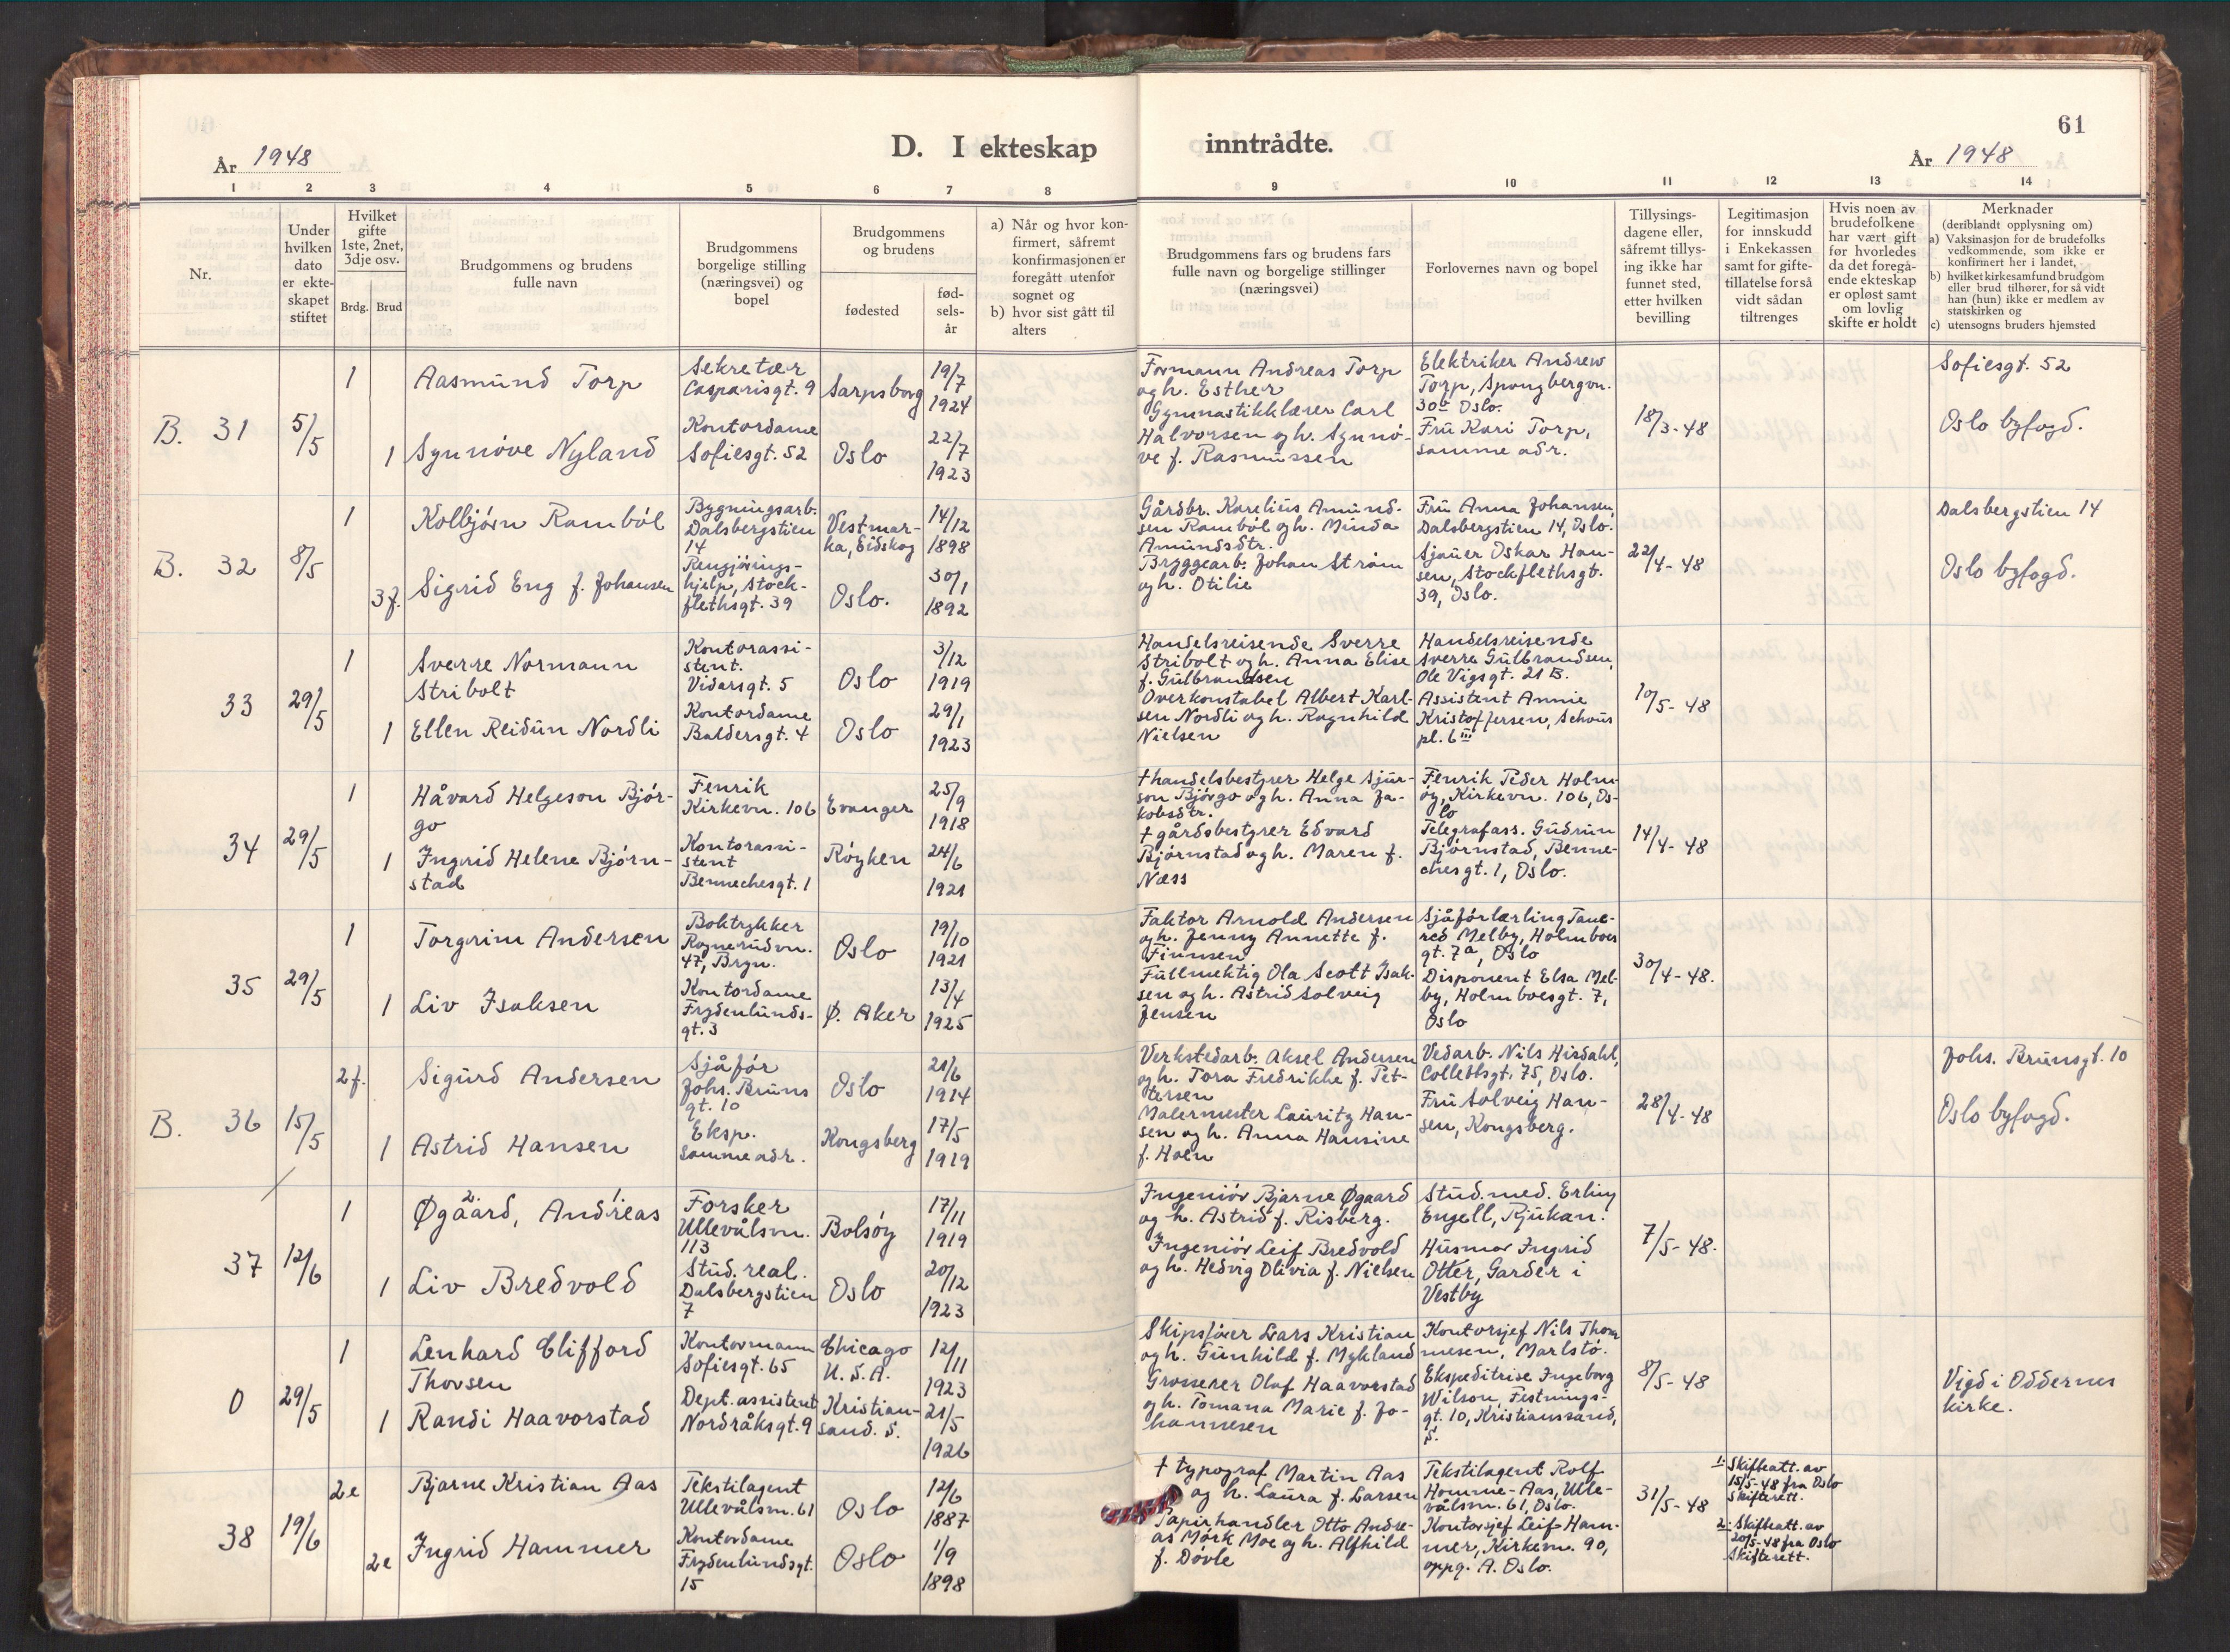 61
År 1948
D. I ekteskap inntrådte.
År 1948
1 2 3 4 5 6 7 8 9 10 11 12 13 14
Nr.
Under hvilken dato er ekte- skapet stiftet
Hvilket gifte 1ste, 2net, 3dje osv.
Brdg. Brud
Brudgommens og brudens fulle navn
Brudgommens borgelige stilling (næringsvei) og bopel
Brudgommens og brudens
fødested
fød- sels- år
a) Når og hvor kon- firmert, såfremt konfirmasjonen er foregått utenfor sognet og
b) hvor sist gått til alters
Brudgommens fars og brudens fars fulle navn og borgelige stillinger (næringsvei)
Forlovernes navn og bopel
Tillysings- dagene eller, såfremt tillys- ing ikke har funnet sted, etter hvilken bevilling
Legitimasjon for innskudd i Enkekassen samt for gifte- tillatelse forså vidt sådan tiltrenges
Hvis noen av brudefolkene har vært gift før hvorledes da det foregå- ende ekteskap er opløst samt om lovlig skifte er holdt
Merknader
(deriblandt opplysning om)
a) Vaksinasjon for de brudefolks vedkommende, som ikke er konfirmert her i landet,
b) hvilket kirkesamfund brudgom eller brud tilhører, for så vidt han (hun) ikke er medlem av statskirken og
c) utensogns bruders hjemsted
B. 31 5/5
1 Aasmund Torp
Sekretær
Casparisgt. 9
Sarpsborg
19/7
1924
1 Synnöve Nyland
Kontordame
Sofiesgt. 52
Oslo
22/7
1923
Formann Andreas Torp
og h. Esther
Gymnastikklærer Carl
Halvorsen og h. Synnö-
ve f. Rasmussen
Elektriker Andrew
Torp, Spongbergvn.
30b Oslo.
Fru Kari Torp,
samme adr.
18/3-48
Sofiesgt. 52
Oslo byfogd.
B. 32 8/5
1 Kolbjörn Ramböl
Bygningsarb.
Dalsbergstien
14
Vestmar-
ka, Eidskog
14/12
1898
3f. Sigrid Eng f. Johansen
Rengjörings-
hjelp, Stock-
flethsgt. 39
Oslo.
30/1
1892
Gårdbr. Karelius Amund-
sen Ramböl og h. Minda
Amundsdtr.
Bryggearb. Johan Ström
og h. Otilie
Fru Anna Johansen,
Dalsbergstien 14, Oslo.
Sjauer Oskar Han-
sen, Stockflethsgt.
39, Oslo.
22/4-48
Dalsbergstien 14
Oslo byfogd.
33 29/5
1 Sverre Normann
Stribolt
Kontorassi-
stent.
Vidarsgt. 5
Oslo
3/12
1919
1 Ellen Reidun Nordli
Kontordame
Baldersgt. 4
Oslo
29/1
1923
Handelsreisende Sverre
Stribolt og h. Anna Elise
f. Gulbrandsen
Overkonstabel Albert Karl-
sen Nordli og h. Ragnhild
Nielsen
Handelsreisende
Sverre Gulbrandsen,
Ole Vigsgt. 21 B.
Assistent Annie
Kristoffersen, Schous
pl. 6 III
10/5-48
34 29/5
1 Håvard Helgeson Björ-
go
Fenrik
Kirkevn. 106
Evanger
25/9
1918
1 Ingrid Helene Björn-
stad
Kontorassi-
stent
Bennechesgt. 1
Röyken
24/6
1921
† handelsbestyrer Helge Sjur-
son Björgo og h. Anna Ja-
kobsdtr.
† gårdsbestyrer Edvard
Björnstad og h. Maren f.
Næss
Fenrik Peder Holm-
öy, Kirkevn. 106, Os-
lo
Telegrafass. Gudrun
Björnstad, Benne-
chesgt. 1, Oslo.
14/4-48
35 29/5
1 Torgrim Andersen
Boktrykker
Rognerudvn.
47, Bryn.
Oslo
19/10
1921
1 Liv Isaksen
Kontordame
Frydenlunds-
gt. 3
Ø. Aker
13/4
1925
Faktor Arnold Andersen
og h. Jenny Annette f.
Finnsen
Fullmektig Ola Scott Isak-
sen og h. Astrid Solveig
Jensen
Sjåförlærling Tanc-
red Melby, Holmboes
gt. 7a, Oslo
Disponent Elsa Mel-
by, Holmboesgt. 7,
Oslo
30/4-48.
B. 36 15/5
2f. Sigurd Andersen
Sjåför
Johs. Bruns
gt. 10
Oslo
21/6
1914
1 Astrid Hansen
Eksp.
Samme adr.
Kongsberg
17/5
1919
Verkstedarb. Aksel Andersen
og h. Tora Fredrikke f. Pet-
tersen
Malermester Lauritz Han-
sen og h. Anna Hansine
f. Holm
Vedarb. Nils Hisdahl,
Collettsgt. 75, Oslo.
Fru Solveig Han-
sen, Kongsberg.
28/4-48
Johs. Brunsgt. 10
Oslo byfogd.
37 12/6
1 Øgaard, Andreas
2. 1
Forsker
Ullevålsvn.
113
Bolsöy
17/11
1919
1 Liv Bredvold
Stud. real.
Dalsbergstien
7
Oslo
20/12
1923
Ingeniör Bjarne Øgaard
og h. Astrid f. Risberg.
Ingeniör Leif Bredvold
og h. Hedvig Olivia f. Nielsen
Stud. med. Erling
Engell, Rjukan.
Husmor Ingrid
Otter, Garder i
Vestby
7/5-48.
0 29/5
1 Lenhard Clifford
Thorsen
Kontormann
Sofiesgt. 65
Chicago
U.S.A.
12/11
1923
1 Randi Haavorstad
Dept. assistent
Nordråksgt. 9
Kristian-
sand. S.
21/5
1926
Skipsförer Lars Kristian
og h. Gunhild f. Mykland
Grosserer Olaf Haavorstad
og h. Tomana Marie f. Jo-
hannesen
Kontorsjef Nils Thom
mesen, Marlstö.
Ekspeditrise Ingeborg
Wilson, Festnings-
gt. 10, Kristianssand,
S.
8/5-48
Vigd i Oddernes
kirke.
38 19/6
2e Bjarne Kristian Aas
Tekstilagent
Ullevålsvn. 61
Oslo
12/6
1887
2e Ingrid Hammer
Kontordame
Frydenlundsgt.
15
Oslo
1/9
1898
† typograf Martin Aas
og h. Laura f. Larsen
Papirhandler Otto Andre-
as Mörk Moe og h. Alfhild
f. Dövle
Tekstilagent Rolf
Homme-Aas, Ulle-
vålsvn. 61, Oslo.
Kontorsjef Leif Ham-
mer, Kirkevn. 90,
oppg. A. Oslo.
31/5-48
1. Skifteatt. av
15/5-48 fra Oslo
Skifterett.
2. Skifteatt. av
20/5-48 fra Oslo
Skifterett.